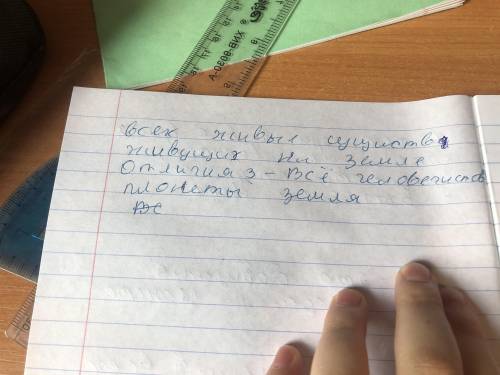 всех живых существ
живущих на земле
Отличия 3 - Всё человечиство
плонеты земля